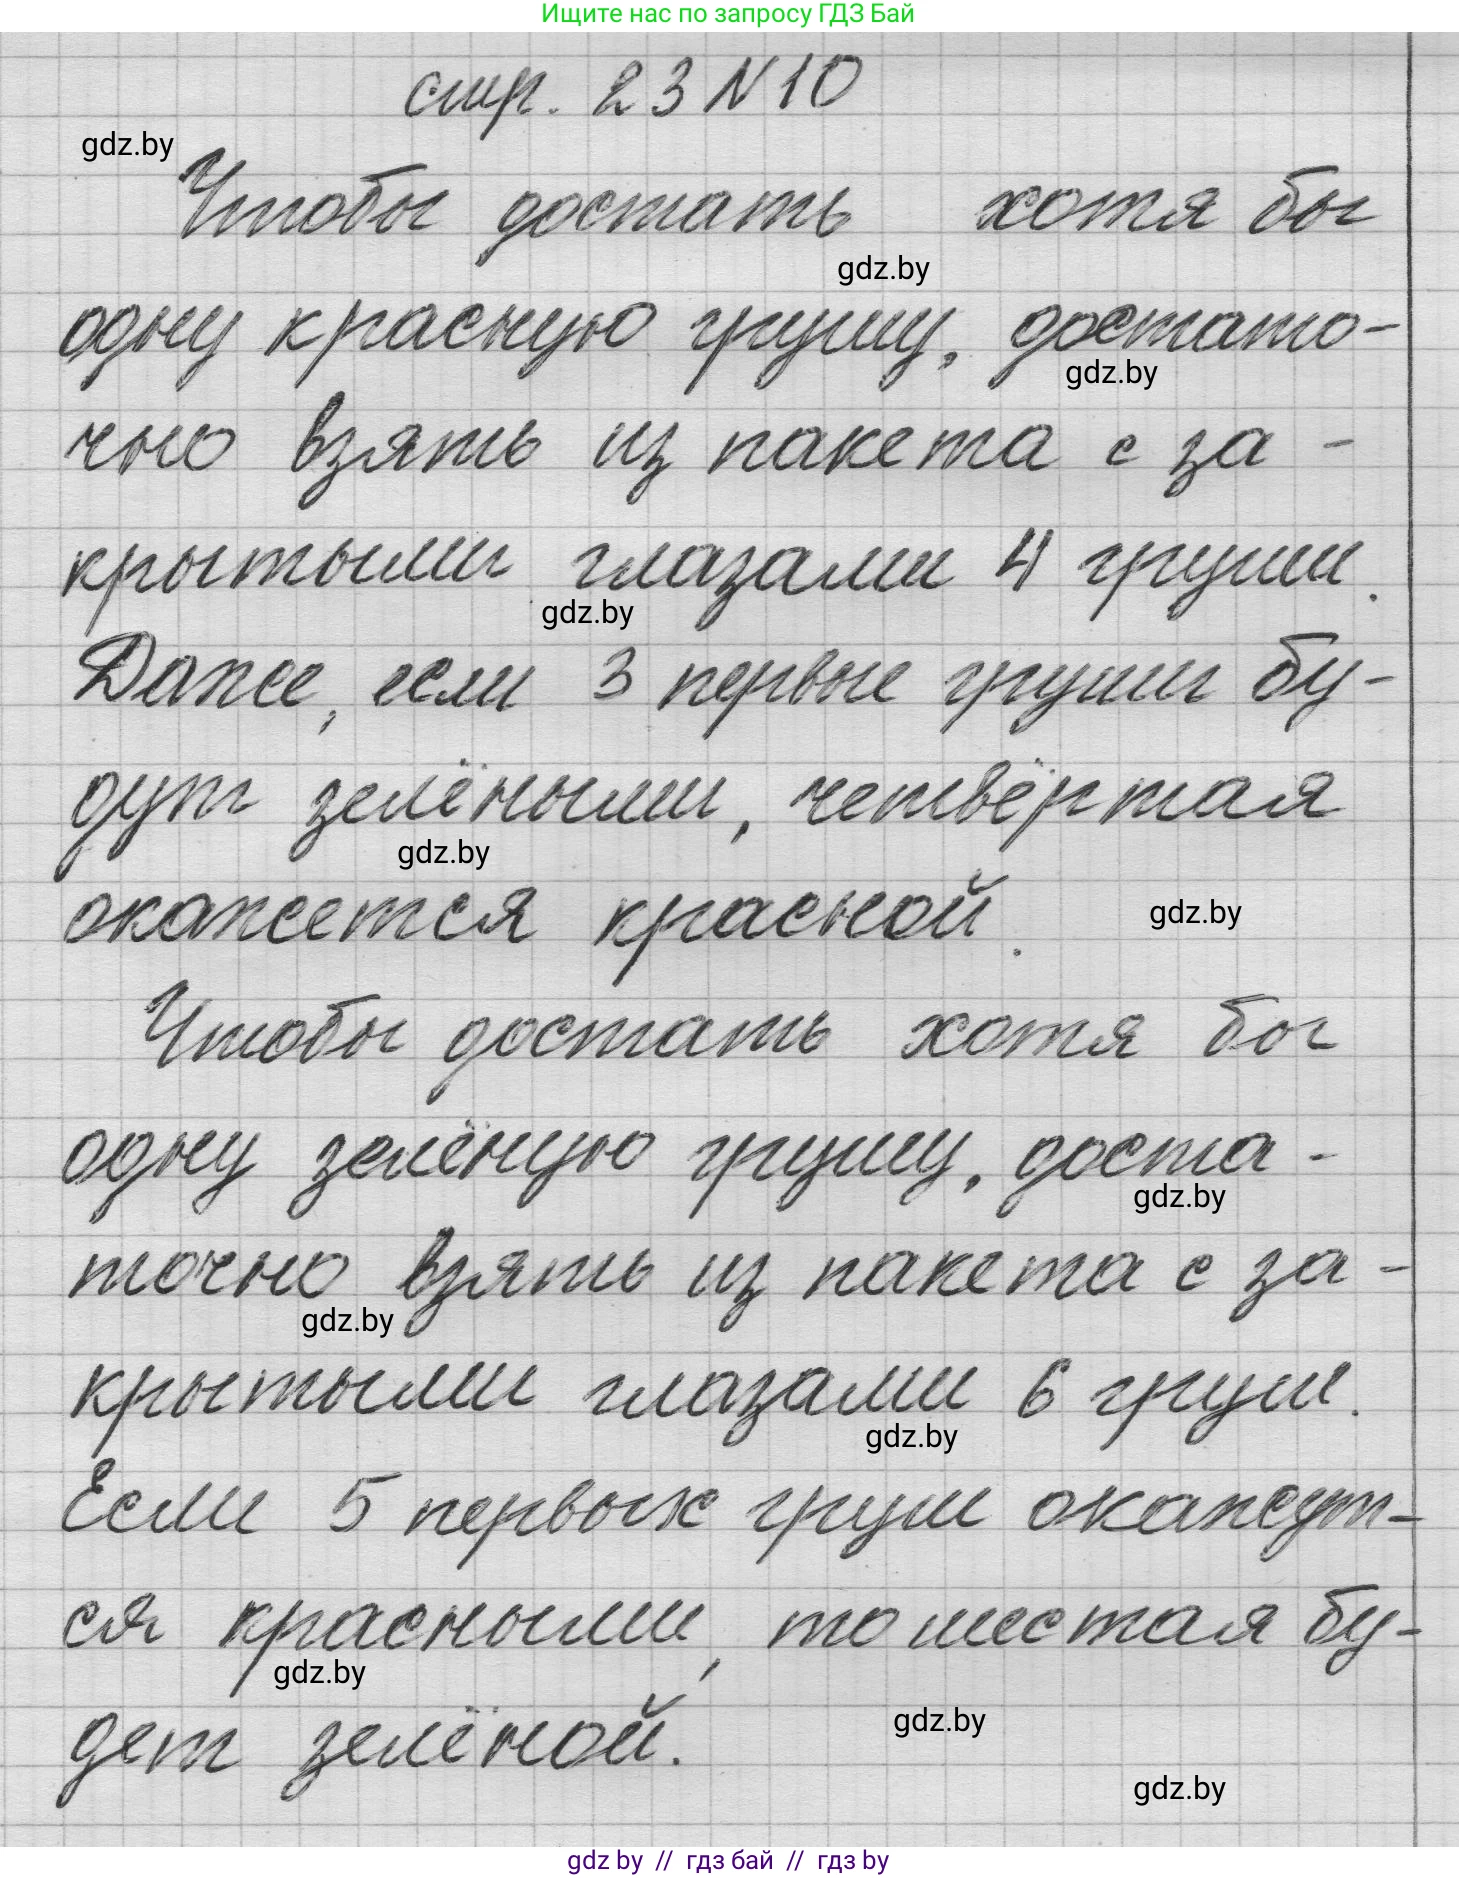 Ищите нас по запросу ГДЗ Бай
стр. 23 N 10
gdz.by
Чтобы достать хотя бы
gdz.by
одну красную грушу, достато-
gdz.by
чно взять из пакета с за-
крытыми глазами 4 груши.
gdz.by
Даже, если 3 первые груши бу-
дут зелёными, четвёртая
gdz.by
окажется красной.
gdz.by
Чтобы достать хотя бы
одну зелёную грушу, доста-
gdz.by
точно взять из пакета с за-
gdz.by
крытыми глазами 6 груш.
gdz.by
Если 5 первых груш окажут-
ся красными, то шестая бу-
gdz.by
дет зелёной.
gdz.by
gdz.by
gdz by // гдз бай // гдз by